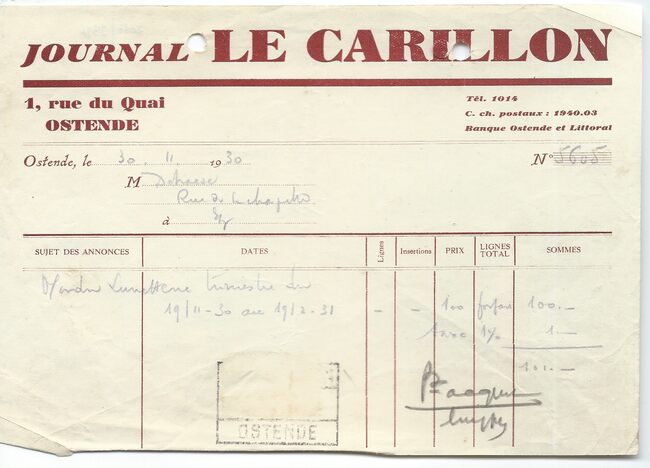 JOURNAL LE CARILLON
1, rue du Quai
OSTENDE
Tél. 1014
C. ch. postaux : 1940.03
Banque Ostende et Littoral
Ostende, le 30 . 11 . 1930
N° 5605
M
Rue de la Chapelle
à
SUJET DES ANNONCES DATES Lignes Insertions PRIX LIGNES TOTAL SOMMES
trimestre du
19/11-30 au 19/2-31 - - 100 forfait 100.-
taxe 1% 1.-
101.-
OSTENDE